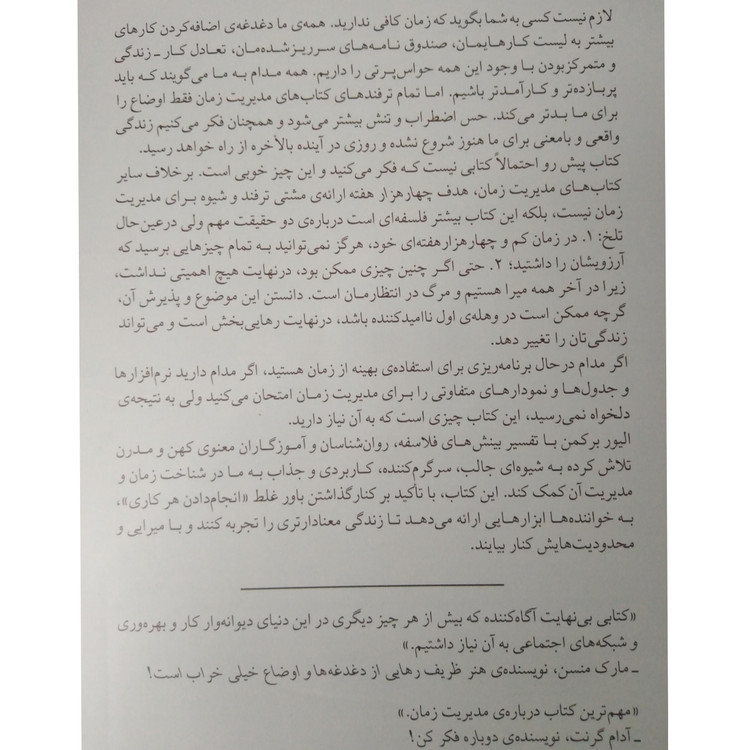 لازم نیست کسی به شما بگوید که زمان کافی ندارید. همه‌ی ما دغدغه‌ی اضافه‌کردن کارهای
بیشتر به لیست کارهایمان، صندوق نامه‌های سرریزشده‌مان، تعادل کار ـ زندگی
و متمرکزبودن با وجود این همه حواس‌پرتی را داریم. همه مدام به ما می‌گویند که باید
پربازده‌تر و کارآمدتر باشیم. اما تمام ترفندهای کتاب‌های مدیریت زمان فقط اوضاع را
برای ما بدتر می‌کند. حس اضطراب و تنش بیشتر می‌شود و همچنان فکر می‌کنیم زندگی
واقعی و بامعنی برای ما هنوز شروع نشده و روزی در آینده بالأخره از راه خواهد رسید.
کتاب پیش رو احتمالاً کتابی نیست که فکر می‌کنید و این چیز خوبی است. برخلاف سایر
کتاب‌های مدیریت زمان، هدف چهارهزار هفته ارائه‌ی مشتی ترفند و شیوه برای مدیریت
زمان نیست، بلکه این کتاب بیشتر فلسفه‌ای است درباره‌ی دو حقیقت مهم ولی درعین‌حال
تلخ: ۱. در زمان کم و چهارهزارهفته‌ای خود، هرگز نمی‌توانید به تمام چیزهایی برسید که
آرزویشان را داشتید؛ ۲. حتی اگر چنین چیزی ممکن بود، درنهایت هیچ اهمیتی نداشت،
زیرا در آخر همه میرا هستیم و مرگ در انتظارمان است. دانستن این موضوع و پذیرش آن،
گرچه ممکن است در وهله‌ی اول ناامیدکننده باشد، درنهایت رهایی‌بخش است و می‌تواند
زندگی‌تان را تغییر دهد.
اگر مدام درحال برنامه‌ریزی برای استفاده‌ی بهینه از زمان هستید، اگر مدام دارید نرم‌افزارها
و جدول‌ها و نمودارهای متفاوتی را برای مدیریت زمان امتحان می‌کنید ولی به نتیجه‌ی
دلخواه نمی‌رسید، این کتاب چیزی است که به آن نیاز دارید.
الیور برکمن با تفسیر بینش‌های فلاسفه، روان‌شناسان و آموزگاران معنوی کهن و مدرن
تلاش کرده به شیوه‌ای جالب، سرگرم‌کننده، کاربردی و جذاب به ما در شناخت زمان و
مدیریت آن کمک کند. این کتاب، با تأکید بر کنارگذاشتن باور غلط «انجام‌دادن هر کاری»،
به خواننده‌ها ابزارهایی ارائه می‌دهد تا زندگی معنادارتری را تجربه کنند و با میرایی و
محدودیت‌هایش کنار بیایند.
«کتابی بی‌نهایت آگاه‌کننده که بیش از هر چیز دیگری در این دنیای دیوانه‌وار کار و بهره‌وری
و شبکه‌های اجتماعی به آن نیاز داشتیم.»
ـ مارک منسن، نویسنده‌ی هنر ظریف رهایی از دغدغه‌ها و اوضاع خیلی خراب است!
«مهم‌ترین کتاب درباره‌ی مدیریت زمان.»
ـ آدام گرنت، نویسنده‌ی دوباره فکر کن!